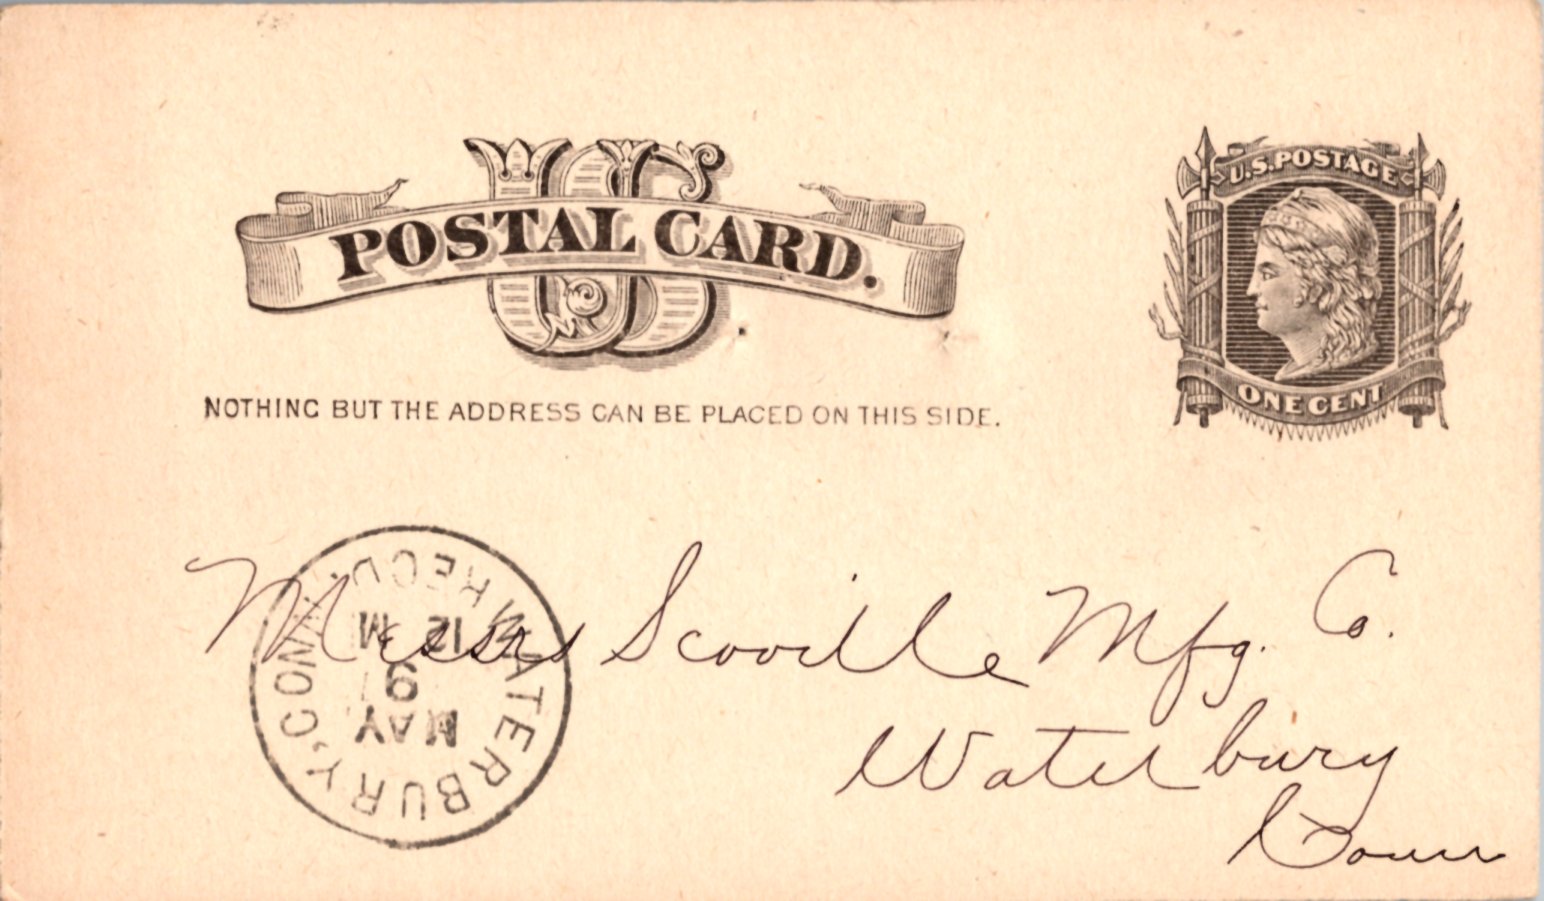 US
POSTAL CARD.
U.S. POSTAGE
ONE CENT
NOTHING BUT THE ADDRESS CAN BE PLACED ON THIS SIDE.
WATERBURY, CONN. REC'D.
MAY
9
12 M
Messrs Scoville Mfg. Co.
Waterbury
Conn